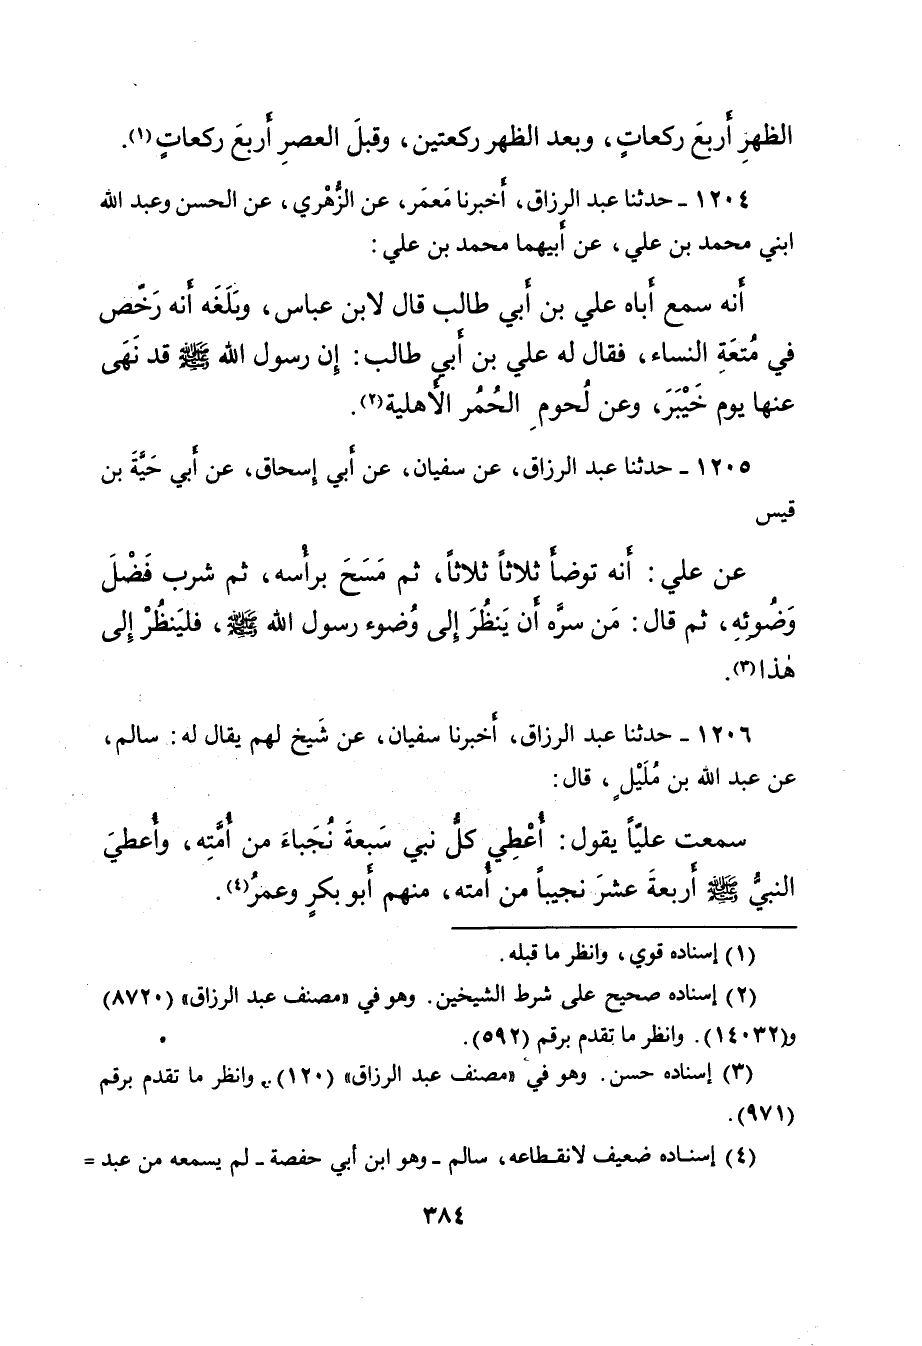 الظهرِ أَربعَ ركعاتٍ، وبعد الظهر ركعتين، وقبلَ العصرِ أَربعَ ركعاتٍ(١).
١٢٠٤ ـ حدثنا عبد الرزاق، أَخبرنا مَعمَر، عن الزُّهْري، عن الحسن وعبد الله
ابني محمد بن علي، عن أَبيهما محمد بن علي:
أَنه سمع أَباه علي بن أَبي طالب قال لابن عباس، وبَلَغَه أَنه رَخَّص
في مُتعَةِ النساء، فقال له علي بن أَبي طالب: إِن رسول الله ﷺ قد نَهَى
عنها يوم خَيْبَرَ، وعن لُحومِ الحُمُر الأَهلية(٢).
١٢٠٥ ـ حدثنا عبد الرزاق، عن سفيان، عن أَبي إِسحاق، عن أَبي حَيَّةَ بن
قيس
عن علي: أَنه توضأَ ثلاثاً ثلاثاً، ثم مَسَحَ برأْسه، ثم شرب فَضْلَ
وَضُوئِهِ، ثم قال: مَن سرَّه أَن يَنظُرَ إِلى وُضوء رسول الله ﷺ، فليَنظُرْ إِلى
هٰذا(٣).
١٢٠٦ ـ حدثنا عبد الرزاق، أَخبرنا سفيان، عن شَيخ لهم يقال له: سالم،
عن عبد الله بن مُلَيْلٍ، قال:
سمعت عليّاً يقول: أُعْطِي كلُّ نبي سَبعةَ نُجَباءَ من أُمَّتِه، وأُعطيَ
النبيُّ ﷺ أَربعةَ عشرَ نجيباً من أُمته، منهم أَبو بكرٍ وعمرُ(٤).
(١) إسناده قوي، وانظر ما قبله.
(٢) إسناده صحيح على شرط الشيخين. وهو في «مصنف عبد الرزاق» (٨٧٢٠)
و(١٤٠٣٢). وانظر ما تقدم برقم (٥٩٢).
(٣) إسناده حسن. وهو في «مصنف عبد الرزاق» (١٢٠)، وانظر ما تقدم برقم
(٩٧١).
(٤) إسناده ضعيف لانقطاعه، سالم ـ وهو ابن أبي حفصة ـ لم يسمعه من عبد =
٣٨٤